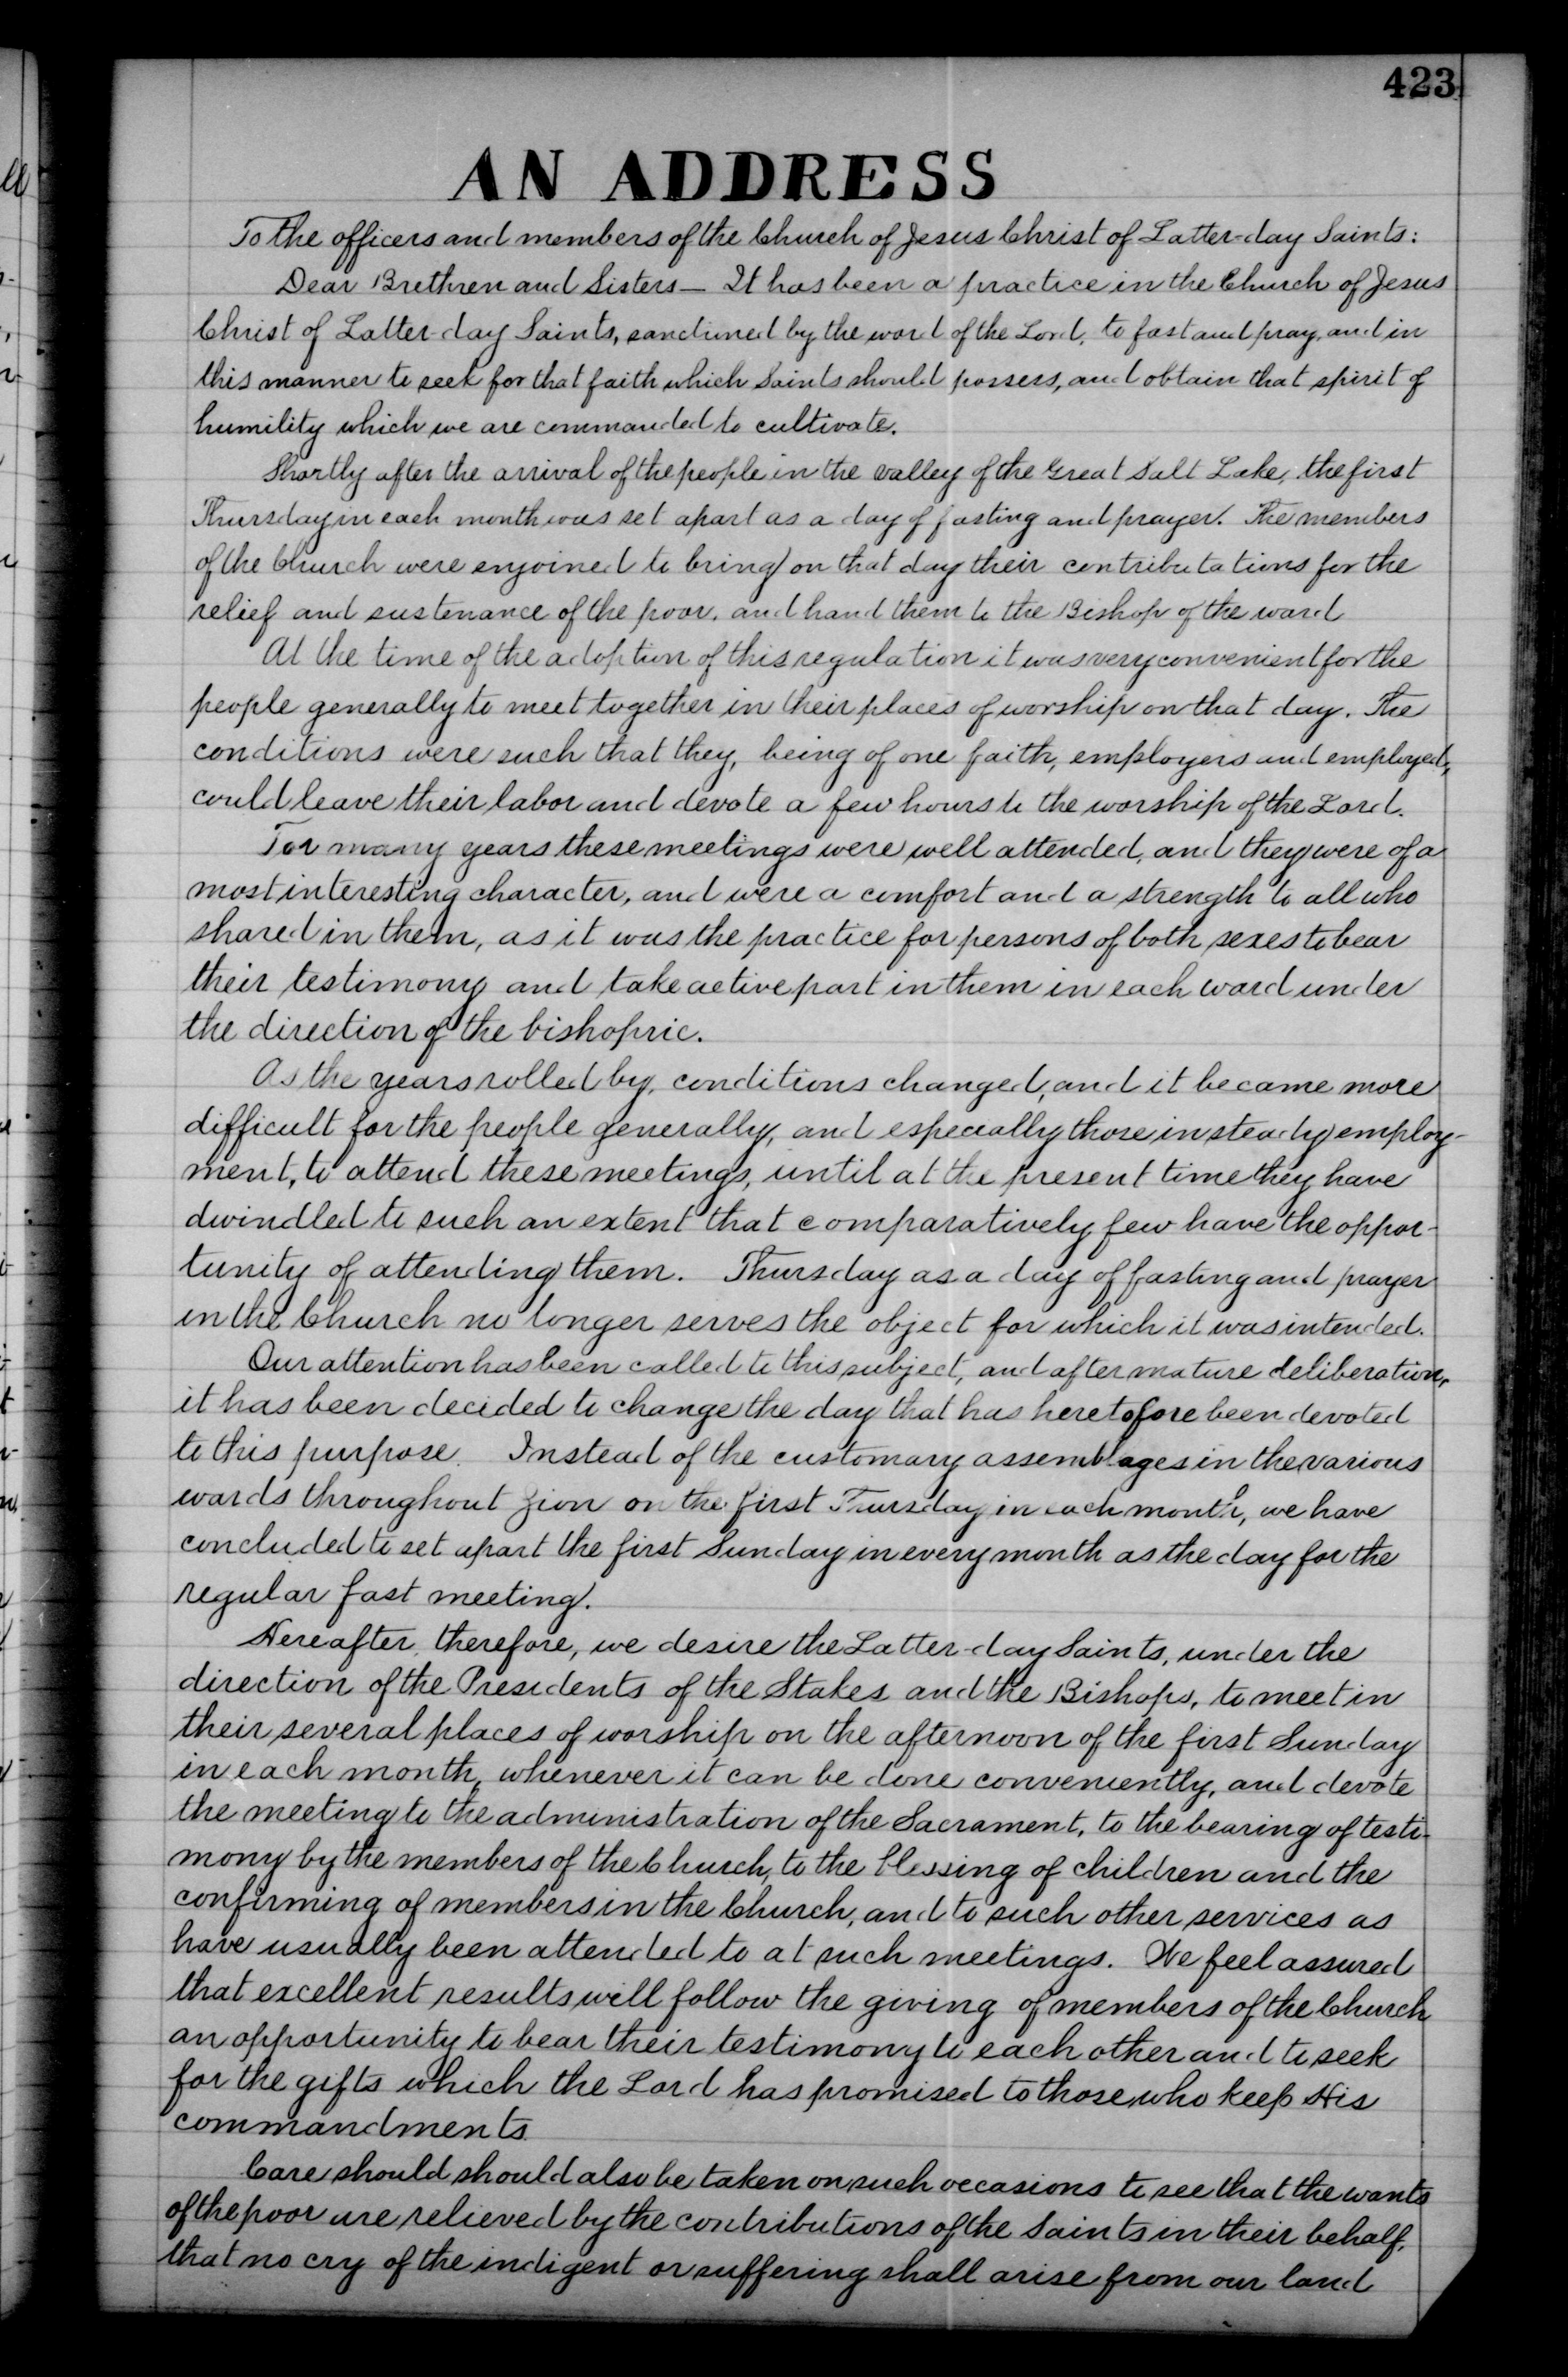 423
AN ADDRESS
To the officers and members of the Church of Jesus Christ of Latter-day Saints:
Dear Brethren and Sisters— It has been a practice in the Church of Jesus
Christ of Latter-day Saints, sanctioned by the word of the Lord, to fast and pray, and in
this manner to seek for that faith which Saints should possess, and obtain that spirit of
humility which we are commanded to cultivate.
Shortly after the arrival of the people in the valley of the Great Salt Lake, the first
Thursday in each month was set apart as a day of fasting and prayer. The members
of the Church were enjoined to bring on that day their contributations for the
relief and sustenance of the poor, and hand them to the Bishop of the ward
At the time of the adoption of this regulation it was very convenient for the
people generally to meet together in their places of worship on that day. The
conditions were such that they, being of one faith, employers and employed,
could leave their labor and devote a few hours to the worship of the Lord.
For many years these meetings were well attended, and they were of a
most interesting character, and were a comfort and a strength to all who
shared in them, as it was the practice for persons of both sexes to bear
their testimony and take active part in them in each ward under
the direction of the bishopric.
As the years rolled by, conditions changed, and it became more
difficult for the people generally, and especially those in steady employ-
ment, to attend these meetings, until at the present time they have
dwindled to such an extent that comparatively few have the oppor-
tunity of attending them. Thursday as a day of fasting and prayer
in the Church no longer serves the object for which it was intended.
Our attention has been called to this subject, and after mature deliberation,
it has been decided to change the day that has heretofore been devoted
to this purpose. Instead of the customary assemblages in the various
wards throughout Zion on the first Thursday in each month, we have
concluded to set apart the first Sunday in every month as the day for the
regular fast meeting.
Hereafter, therefore, we desire the Latter-day Saints, under the
direction of the Presidents of the Stakes and the Bishops, to meet in
their several places of worship on the afternoon of the first Sunday
in each month, whenever it can be done conveniently, and devote
the meeting to the administration of the Sacrament, to the bearing of testi-
mony by the members of the Church, to the blessing of children and the
confirming of members in the Church, and to such other services as
have usually been attended to at such meetings. We feel assured
that excellent results will follow the giving of members of the Church
an opportunity to bear their testimony to each other and to seek
for the gifts which the Lord has promised to those who keep His
commandments
Care should should also be taken on such occasions to see that the wants
of the poor are relieved by the contributions of the Saints in their behalf,
that no cry of the indigent or suffering shall arise from our land